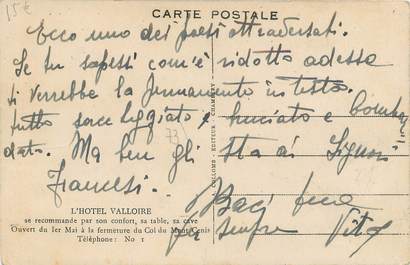 15€
CARTE POSTALE
Ecco uno dei paesi attraversati.
Se tu sapessi com'è ridotto adesso
ti verrebbe la permanente in testa.
tutto saccheggiato e bruciato e bombar
dato. Ma ben gli sta ai Signori
Francesi.
Baci
per sempre Vito
L'HOTEL VALLOIRE
se recommande par son confort, sa table, sa cave
Ouvert du 1er Mai à la fermeture du Col du Mont Cenis
Téléphone: No 1
EDITEUR - CHAMBERY
73